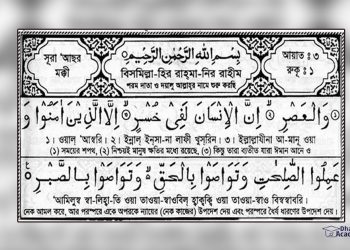 সূরা 'আছর
মক্কী
بِسْمِ اللهِ الرَّحْمٰنِ الرَّحِيْمِ
বিসমিল্লা-হির রাহ্মা-নির রাহীম
পরম দাতা ও দয়ালু আল্লাহর নামে শুরু করছি
আয়াত : ৩
রুকূ : ১
وَالْعَصْرِ ۝ اِنَّ الْاِنْسَانَ لَفِيْ خُسْرٍ ۝ اِلَّا الَّذِيْنَ اٰمَنُوْا وَ
১। ওয়াল্ 'আছরি। ২। ইন্নাল্ ইন্সা-না লাফী খুসরিন। ৩। ইল্লাল্লাযীনা আ-মানূ ওয়া
(১) সময়ের শপথ, (২) নিশ্চয়ই মানুষ ক্ষতির মধ্যে রয়েছে, (৩) কিন্তু তারা ব্যতীত যারা ঈমান আনে ও
عَمِلُوا الصّٰلِحٰتِ وَتَوَاصَوْا بِالْحَقِّ وَتَوَاصَوْا بِالصَّبْرِ ۝
'আমিলুছ্ ছা-লিহা-তি ওয়া তাওয়া-ছাওবিল্ হাক্বক্বি ওয়া তাওয়া-ছাও বিছ্ছাবরি।
নেক আমল করে, আর পরস্পরে একে অপরকে ন্যায়ের (নেক কাজের) উপদেশ দেয় এবং পরস্পরে ধৈর্য ধারণের উপদেশ দেয়।